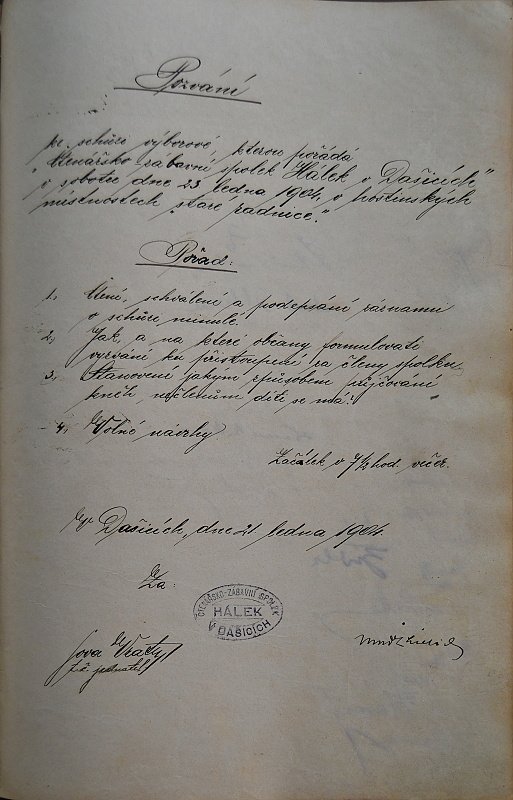 Pozvání
ku schůze výborové, kterou pořádá
"Čtenářsko zábavní spolek Hálek v Dašicích"
v sobotu dne 23. ledna 1904, v hostinských
místnostech "staré radnice."
Pořad:
1. Čtení, schválení a podepsání záznamu
o schůze minulé.
2. Jak, a na které občany formulovati
vyzvání ku přistoupení za členy spolku.
3. Stanovení jakým způsobem půjčování
kněh, nečlenům díti se má.
4. Volné návrhy
Začátek v hod. večer.
V Dašicích, dne 21. ledna 1904.
Za:
ČTENÁŘSKO-ZÁBAVNÍ SPOLEK
HÁLEK
V DAŠICÍCH
jednatel